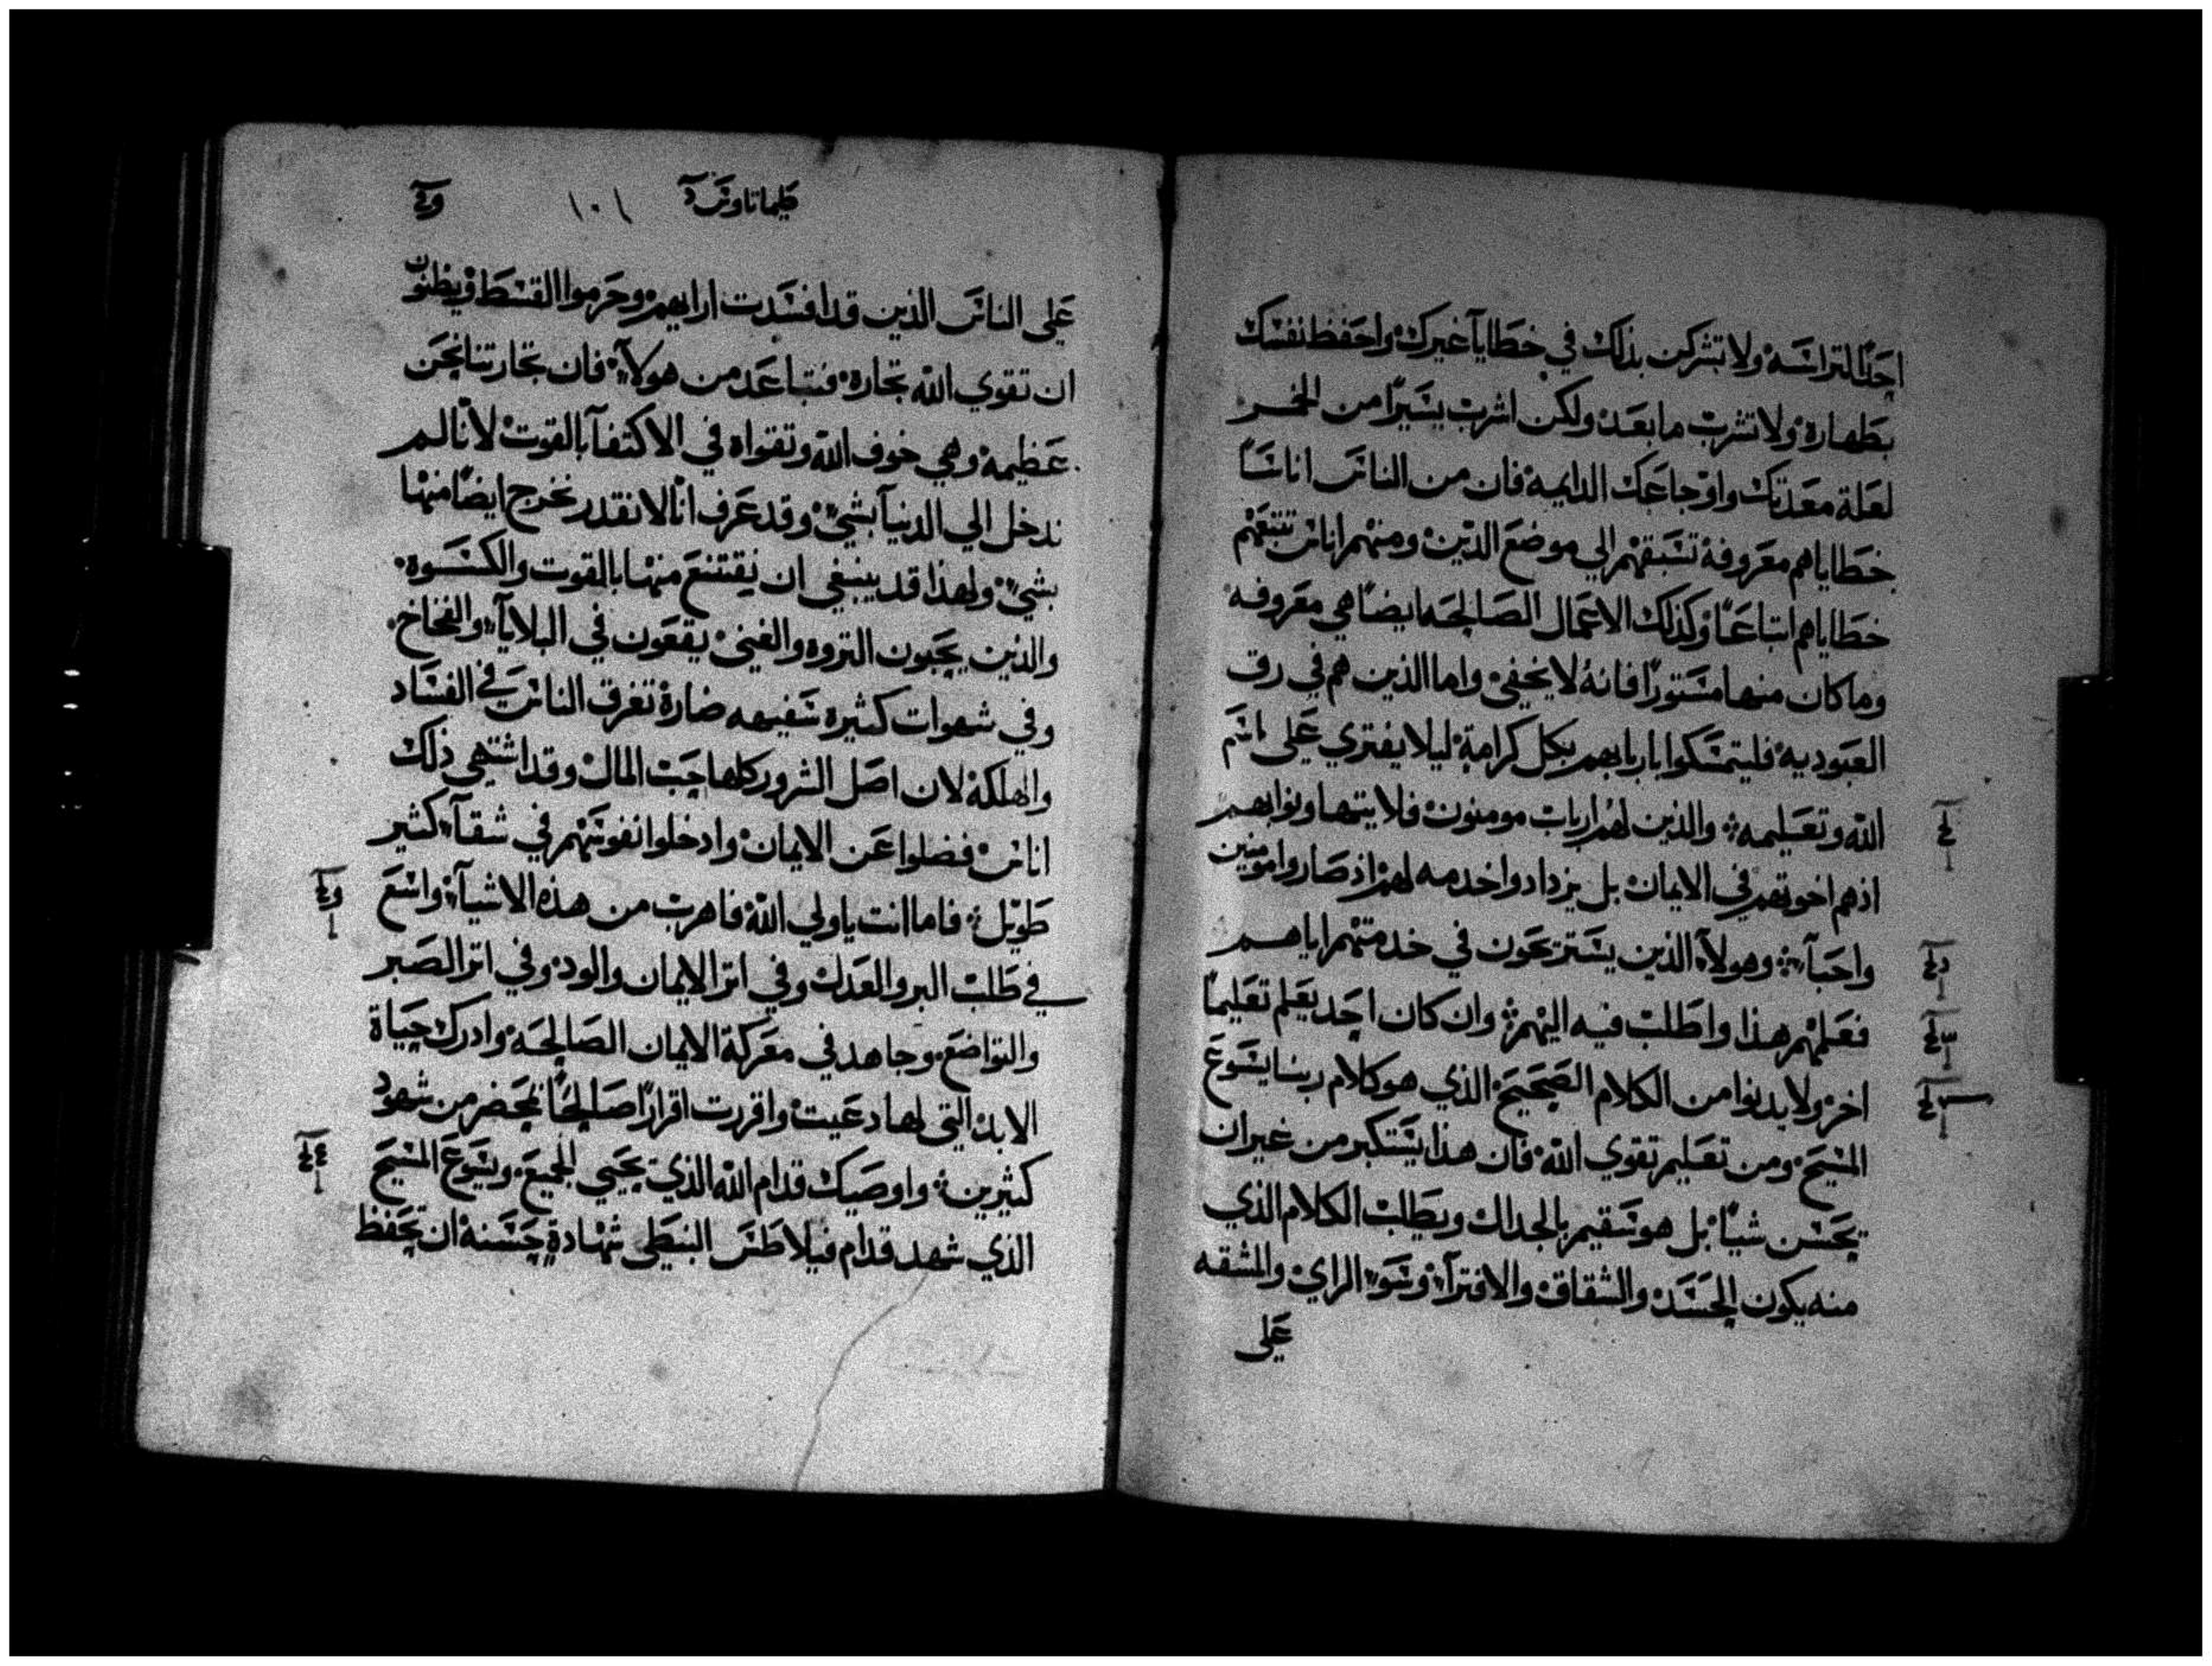 احدًا للتراسه ولا تشركن بذلك في خطايا غيرك واحفظ نفسك
بطهارة ولا تشرب ما بعد ولكن اشرب يسيرًا من الخمر
لعلة معدتك واوجاعك الدايمه فان من الناس اناسًا
خطاياهم معروفة تسبقهم الي موضع الدين ومنهم اناس تتبعهم
خطاياهم اتباعًا وكذلك الاعمال الصالحه ايضًا هي معروفه
وما كان منها مستورًا فانه لا يخفي واما الذين هم في رق
العبوديه فليتمسكوا باربابهم بكل كرامة ليلا يفتري علي اسم
الله وتعليمه والذين لهم ارباب مومنون فلا يتهاونوا بهم
اذ هم اخوتهم في الايمان بل يزدادوا خدمه لهم اذ صاروا مومنين
واحبآء وهولآء الذين يستريحون في خدمتهم اياهم
فعلمهم هذا واطلب فيه اليهم وان كان احد يعلم تعليمًا
اخر ولا يدنوا من الكلام الصحيح الذي هو كلام ربنا يسوع
المسيح ومن تعليم تقوي الله فان هذا يستكبر من غير ان
يحسن شيًا بل هو سقيم بالجدال ويطلب الكلام الذي
منه يكون الحسد والشقاق والافترآء وسوء الراي والمشقه
علي
١٠١
علي الناس الذين قد افسدت ارايهم وحرموا القسط ويظنون
ان تقوي الله تجارة فتباعد من هولآء فان تجارتنا نحن
عظيمة وهي خوف الله وتقواه في الاكتفآ بالقوت لانا لم
ندخل الي الدنيا بشيء وقد عرف انا لا نقدر نخرج ايضًا منها
بشيء ولهذا قد ينبغي ان نقتنع منها بالقوت والكسوة
والذين يحبون الثروه والغني يقعون في البلايا والفخاخ
وفي شهوات كثيرة سفيهه ضارة تغرق الناس في الفساد
والهلكة لان اصل الشرور كلها حب المال وقد اشتهي ذلك
اناس فضلوا عن الايمان وادخلوا نفوسهم في شقآء كثير
طويل فاما انت يا ولي الله فاهرب من هذه الاشيآء واسع
في طلب البر والعدل وفي اثر الايمان والود وفي اثر الصبر
والتواضع وجاهد في معركة الايمان الصالحة وادرك حياة
الابد التي لها دعيت واقررت اقرارًا صالحًا بمحضر من شهود
كثيرين واوصيك قدام الله الذي يحيي الجميع ويسوع المسيح
الذي شهد قدام فيلاطس البنطي شهادة حسنة ان تحفظ